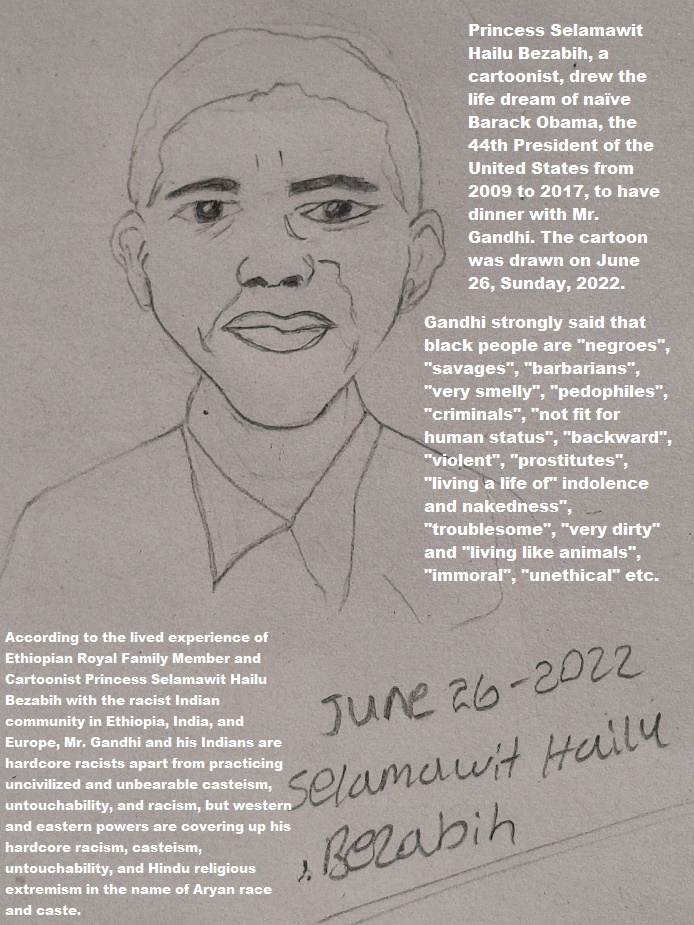 Princess Selamawit
Hailu Bezabih, a
cartoonist, drew the
life dream of naïve
Barack Obama, the
44th President of the
United States from
2009 to 2017, to have
dinner with Mr.
Gandhi. The cartoon
was drawn on June
26, Sunday, 2022.
Gandhi strongly said that
black people are "negroes",
"savages", "barbarians",
"very smelly", "pedophiles",
"criminals", "not fit for
human status", "backward",
"violent", "prostitutes",
"living a life of" indolence
and nakedness",
"troublesome", "very dirty"
and "living like animals",
"immoral", "unethical" etc.
According to the lived experience of
Ethiopian Royal Family Member and
Cartoonist Princess Selamawit Hailu
Bezabih with the racist Indian
community in Ethiopia, India, and
Europe, Mr. Gandhi and his Indians are
hardcore racists apart from practicing
uncivilized and unbearable casteism,
untouchability, and racism, but western
and eastern powers are covering up his
hardcore racism, casteism,
untouchability, and Hindu religious
extremism in the name of Aryan race
and caste.
June 26-2022
Selamawit Hailu
Bezabih